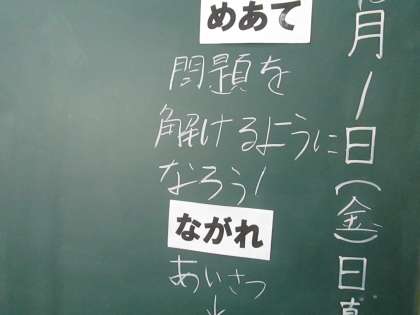 月1日(金)日
めあて
問題を
解けるように
なろう!
ながれ
あいさつ
↓